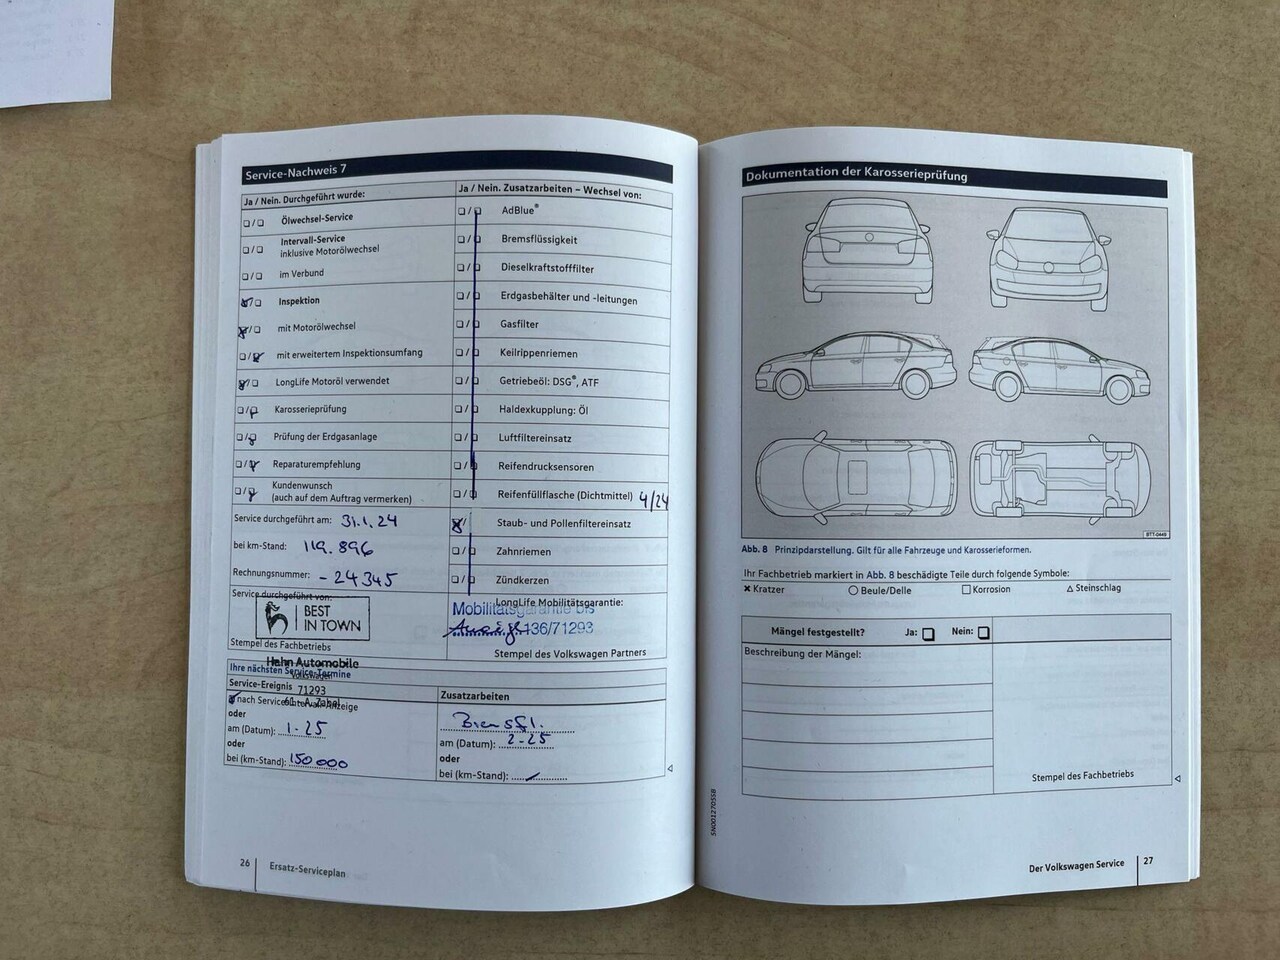 Service-Nachweis 7
Ja / Nein. Durchgeführt wurde:
Ölwechsel-Service
Intervall-Service
inklusive Motorölwechsel
im Verbund
Inspektion
mit Motorölwechsel
mit erweitertem Inspektionsumfang
LongLife Motoröl verwendet
Karosserieprüfung
Prüfung der Erdgasanlage
Reparaturempfehlung
Kundenwunsch
(auch auf dem Auftrag vermerken)
Service durchgeführt am: 31.1.24
bei km-Stand: 119.896
Rechnungsnummer: -24345
Service durchgeführt von:
BEST
IN TOWN
Stempel des Fachbetriebs
Hahn Automobile
Volkswagen
71293
Ja / Nein. Zusatzarbeiten – Wechsel von:
AdBlue®
Bremsflüssigkeit
Dieselkraftstofffilter
Erdgasbehälter und -leitungen
Gasfilter
Keilrippenriemen
Getriebeöl: DSG®, ATF
Haldexkupplung: Öl
Luftfiltereinsatz
Reifendrucksensoren
Reifenfüllflasche (Dichtmittel) 4/24
Staub- und Pollenfiltereinsatz
Zahnriemen
Zündkerzen
LongLife Mobilitätsgarantie:
Mobilitätsgarantie bis
136/71293
Stempel des Volkswagen Partners
Ihre nächsten Service-Termine
Service-Ereignis
nach Service-Intervall-Anzeige
oder
am (Datum): 1-25
oder
bei (km-Stand): 150000
Zusatzarbeiten
Bremsfl.
am (Datum): 2-25
oder
bei (km-Stand):
26
Ersatz-Serviceplan
Dokumentation der Karosserieprüfung
BTT-0449
Abb. 8 Prinzipdarstellung. Gilt für alle Fahrzeuge und Karosserieformen.
Ihr Fachbetrieb markiert in Abb. 8 beschädigte Teile durch folgende Symbole:
Kratzer
Beule/Delle
Korrosion
Steinschlag
Mängel festgestellt? Ja: Nein:
Beschreibung der Mängel:
Stempel des Fachbetriebs
5N0012705SB
Der Volkswagen Service
27